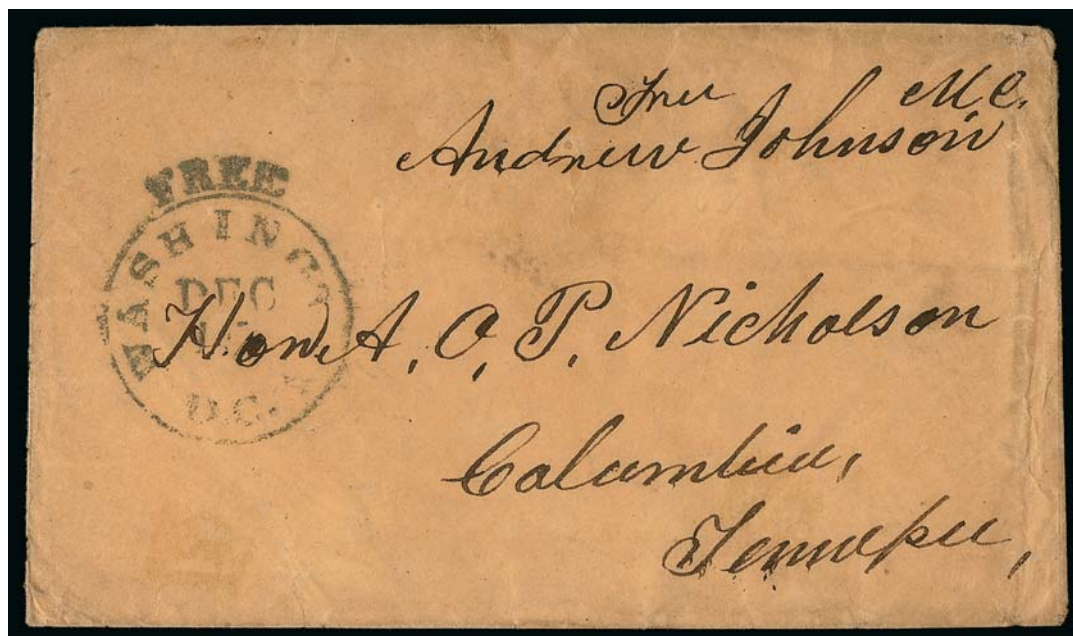 Free M.C.
Andrew Johnson
FREE
WASHINGTON
DEC
D.C.
Hon. A. O. P. Nicholson
Columbia,
Tennessee,